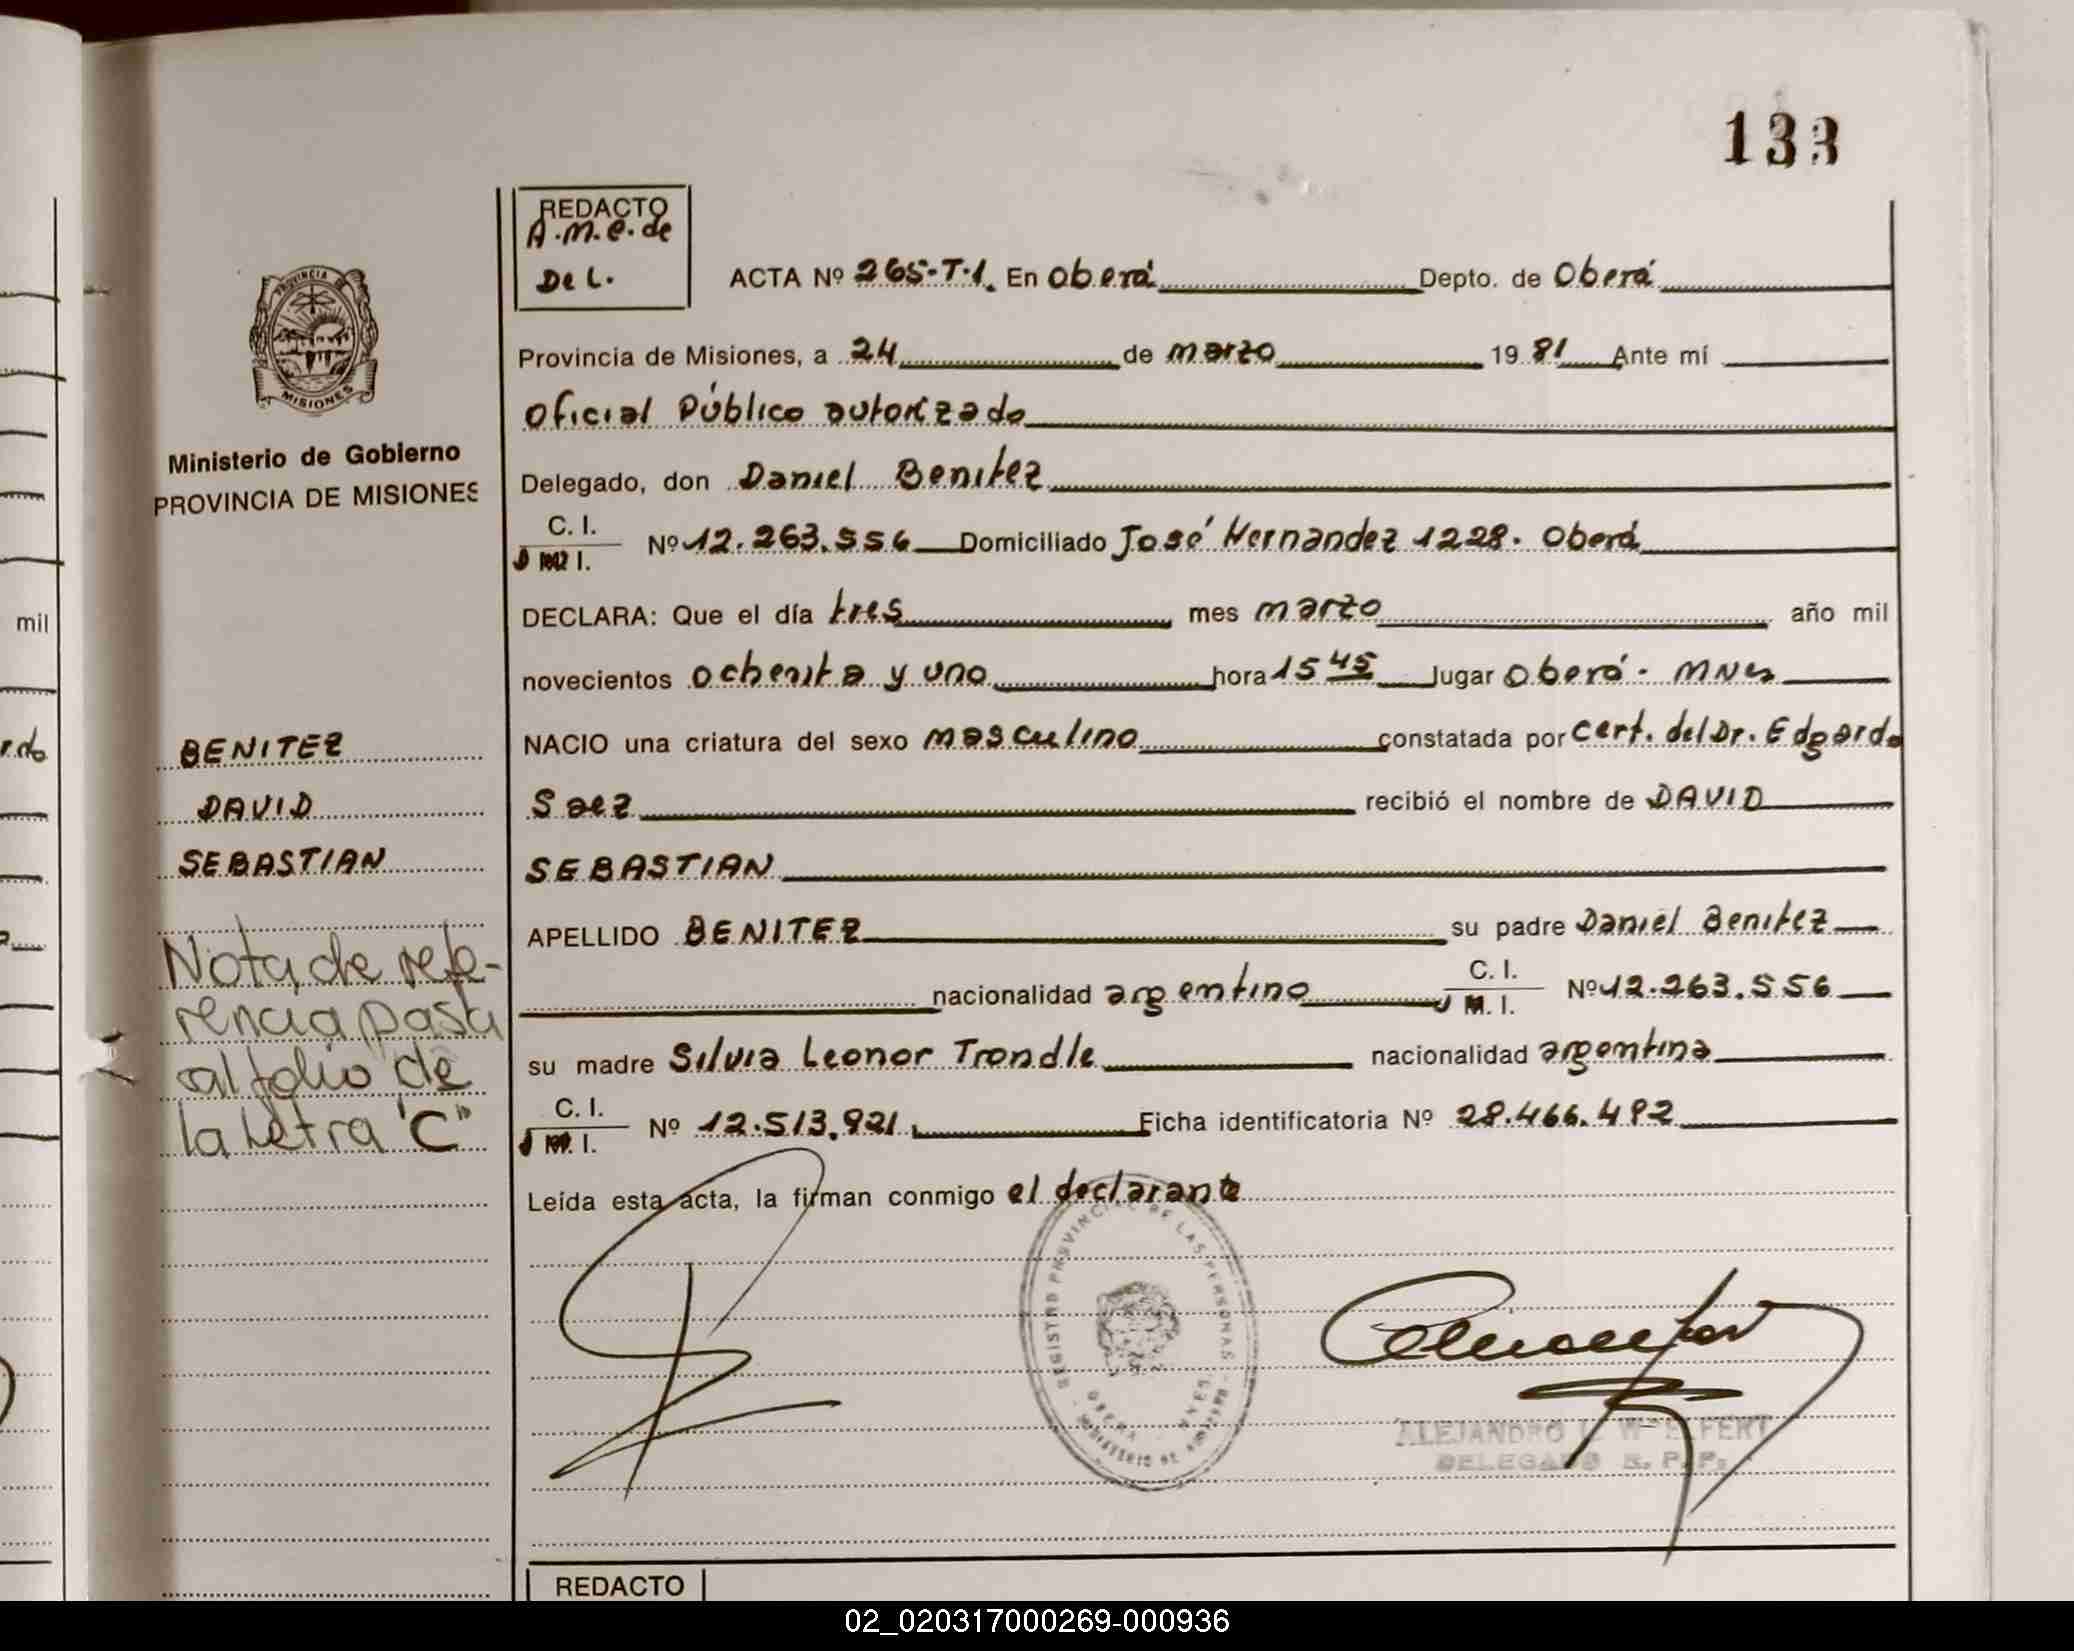 133
REDACTO
A.M.E. de
De L.
ACTA Nº 265-T-1. En Oberá Depto. de Oberá
Provincia de Misiones, a 24 de marzo 1981 Ante mí
Oficial Público autorizado
Delegado, don Daniel Benitez
C. I.
M. I.
Nº 12.263.556 Domiciliado José Hernandez 1228. Oberá
DECLARA: Que el día tres mes marzo año mil
novecientos ochenta y uno hora 15 45 lugar Oberá - MNes
NACIO una criatura del sexo masculino constatada por Cert. del Dr. Edgardo
Saez recibió el nombre de DAVID
SEBASTIAN
APELLIDO BENITEZ su padre Daniel Benitez
nacionalidad argentino C. I. M. I. Nº 12.263.556
su madre Silvia Leonor Trondle nacionalidad argentina
C. I.
M. I.
Nº 12.513.921 Ficha identificatoria Nº 28.466.492
Leída esta acta, la firman conmigo el declarante
PROVINCIA DE
MISIONES
Ministerio de Gobierno
PROVINCIA DE MISIONES
BENITEZ
DAVID
SEBASTIAN
Nota de refe-
rencia pasa
al folio de
la Letra "C"
REGISTRO PROVINCIAL DE LAS PERSONAS
OBERA
ALEJANDRO
DELEGADO R. P. P.
REDACTO
mil
02_020317000269-000936